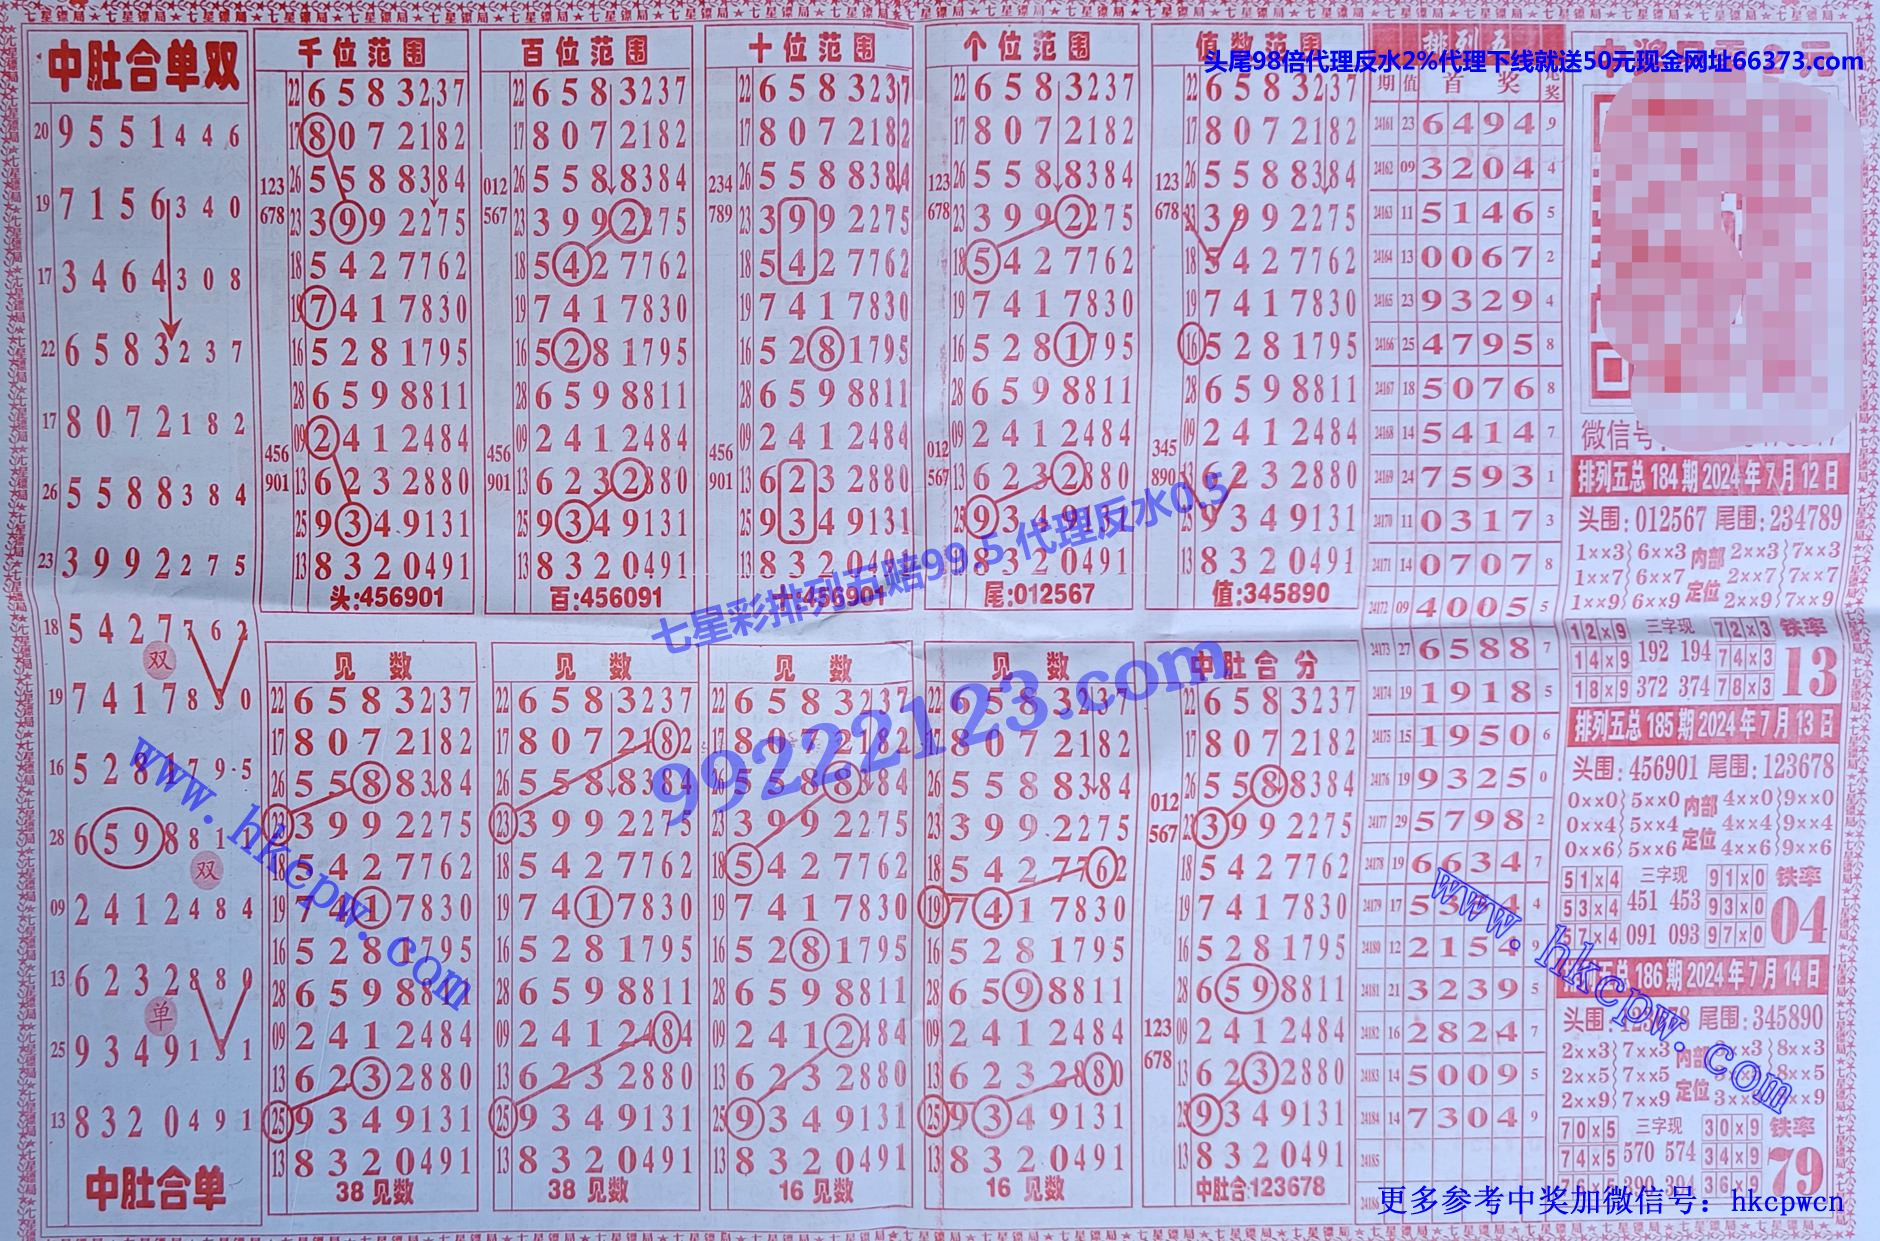 头尾98倍代理反水2%代理下线就送50元现金网址66373.com
中肚合单双
20 9551446
19 7156340
17 3464308
22 6583237
17 8072182
26 5588384
23 3992275
18 5427762
双
19 7417830
16 5281795
28 6598811
双
09 2412484
13 6232880
单
25 9349131
13 8320491
中肚合单
千位范围
22 6583237
17 8072182
26 5588384
123
678
23 3992275
18 5427762
19 7417830
16 5281795
28 6598811
09 2412484
456
901
13 6232880
25 9349131
13 8320491
头:456901
百位范围
22 6583237
17 8072182
26 5588384
012
567
23 3992275
18 5427762
19 7417830
16 5281795
28 6598811
09 2412484
456
901
13 6232880
25 9349131
13 8320491
百:456091
十位范围
22 6583237
17 8072182
26 5588384
234
789
23 3992275
18 5427762
19 7417830
16 5281795
28 6598811
09 2412484
456
901
13 6232880
25 9349131
13 8320491
十:456901
个位范围
22 6583237
17 8072182
26 5588384
123
678
23 3992275
18 5427762
19 7417830
16 5281795
28 6598811
09 2412484
012
567
13 6232880
25 9349131
13 8320491
尾:012567
值数范围
22 6583237
17 8072182
26 5588384
123
678
23 3992275
18 5427762
19 7417830
16 5281795
28 6598811
09 2412484
345
890
13 6232880
25 9349131
13 8320491
值:345890
见数
22 6583237
17 8072182
26 5588384
23 3992275
18 5427762
19 7417830
16 5281795
28 6598811
09 2412484
13 6232880
25 9349131
13 8320491
38见数
见数
22 6583237
17 8072182
26 5588384
23 3992275
18 5427762
19 7417830
16 5281795
28 6598811
09 2412484
13 6232880
25 9349131
13 8320491
38见数
见数
22 6583237
17 8072182
26 5588384
23 3992275
18 5427762
19 7417830
16 5281795
28 6598811
09 2412484
13 6232880
25 9349131
13 8320491
16见数
见数
22 6583237
17 8072182
26 5588384
23 3992275
18 5427762
19 7417830
16 5281795
28 6598811
09 2412484
13 6232880
25 9349131
13 8320491
16见数
中肚合分
22 6583237
17 8072182
26 5588384
012
567
23 3992275
18 5427762
19 7417830
16 5281795
28 6598811
123
678
09 2412484
13 6232880
25 9349131
13 8320491
中肚合:123678
排列五
期 值 首奖 尾奖
24161 23 6494 9
24162 09 3204 4
24163 11 5146 5
24164 13 0067 2
24165 23 9329 4
24166 25 4795 8
24167 18 5076 8
24168 14 5414 7
24169 24 7593 1
24170 11 0317 3
24171 14 0707 8
24172 09 4005 5
24173 27 6588 7
24174 19 1918 5
24175 15 1950 6
24176 19 9325 0
24177 29 5798 2
24178 19 6634 7
24179 17
24180 12 2154 9
24181 21 3239 5
24182 16 2824 7
24183 14 5009 5
24184 14 7304 9
24185
24186
微信号
排列五总184期2024年7月12日
头围:012567 尾围:234789
1××3 6××3 内部 2××3 7××3
1××7 6××7 2××7 7××7
1××9 6××9 定位 2××9 7××9
12×9 三字现 72×3 铁率
14×9 192 194 74×3 13
18×9 372 374 78×3
排列五总185期2024年7月13日
头围:456901 尾围:123678
0××0 5××0 内部 4××0 9××0
0××4 5××4 4××4 9××4
0××6 5××6 定位 4××6 9××6
51×4 三字现 91×0 铁率
53×4 451 453 93×0 04
57×4 091 093 97×0
五总186期2024年7月14日
头围: 尾围:345890
2××3 7××3 内部 8××3
2××5 7××5 8××5
2××9 7××9 定位 3××9
70×5 三字现 30×9 铁率
74×5 570 574 34×9 79
76×5 390 394 36×9
七星彩排列五赔99.5 代理反水0.5
99222123.com
www.hkcpw.com
www.hkcpw.com
更多参考中奖加微信号：hkcpwcn
七星镖局★七星镖局★七星镖局